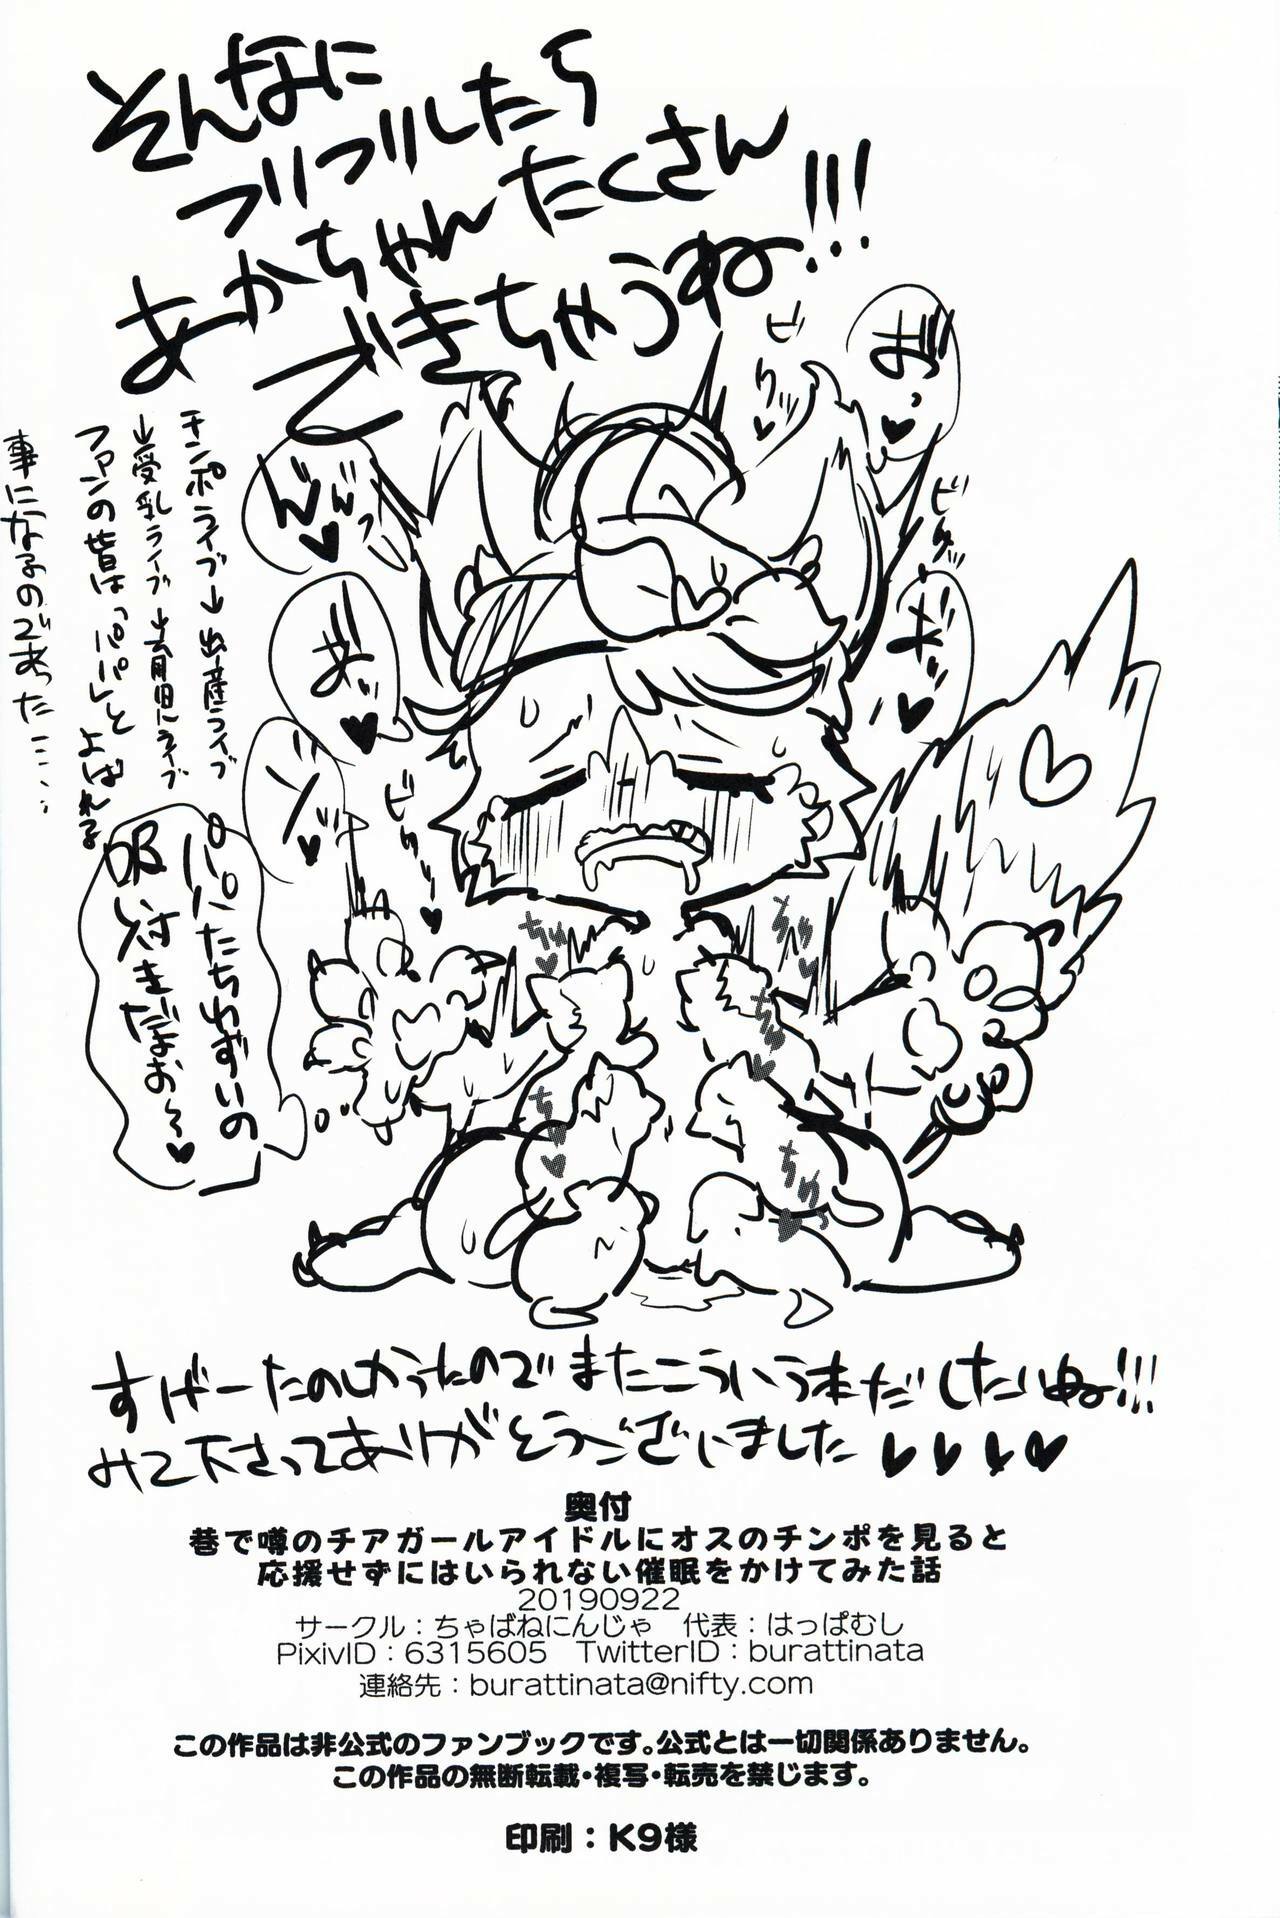 そんなに
ブリブリしたら
あかちゃんたくさん
できちゃうね…!!!
チンポライブ→出産ライブ
→受乳ライブ→去月旦にライブ
ファンの皆は「パパ」と
よばれる
事になるのであった……
おっ♥
んんっ♥
あっ♥
ビュッ
ビュー♥
パパたちはずいの
吸い付きだぉお〜♥
ちゅ♥
ちゅ♥
ちゅ♥
ちゅ♥
ちゅっ♥
すげーたのしかったのでまたこういう本だしたいね!!!
みて下さってありがとうございました♥♥♥♥
奥付
巷で噂のチアガールアイドルにオスのチンポを見ると
応援せずにはいられない催眠をかけてみた話
20190922
サークル：ちゃばねにんじゃ　代表：はっぱむし
PixivID：6315605　TwitterID：burattinata
連絡先：burattinata@nifty.com
この作品は非公式のファンブックです。公式とは一切関係ありません。
この作品の無断転載・複写・転売を禁じます。
印刷：K9様